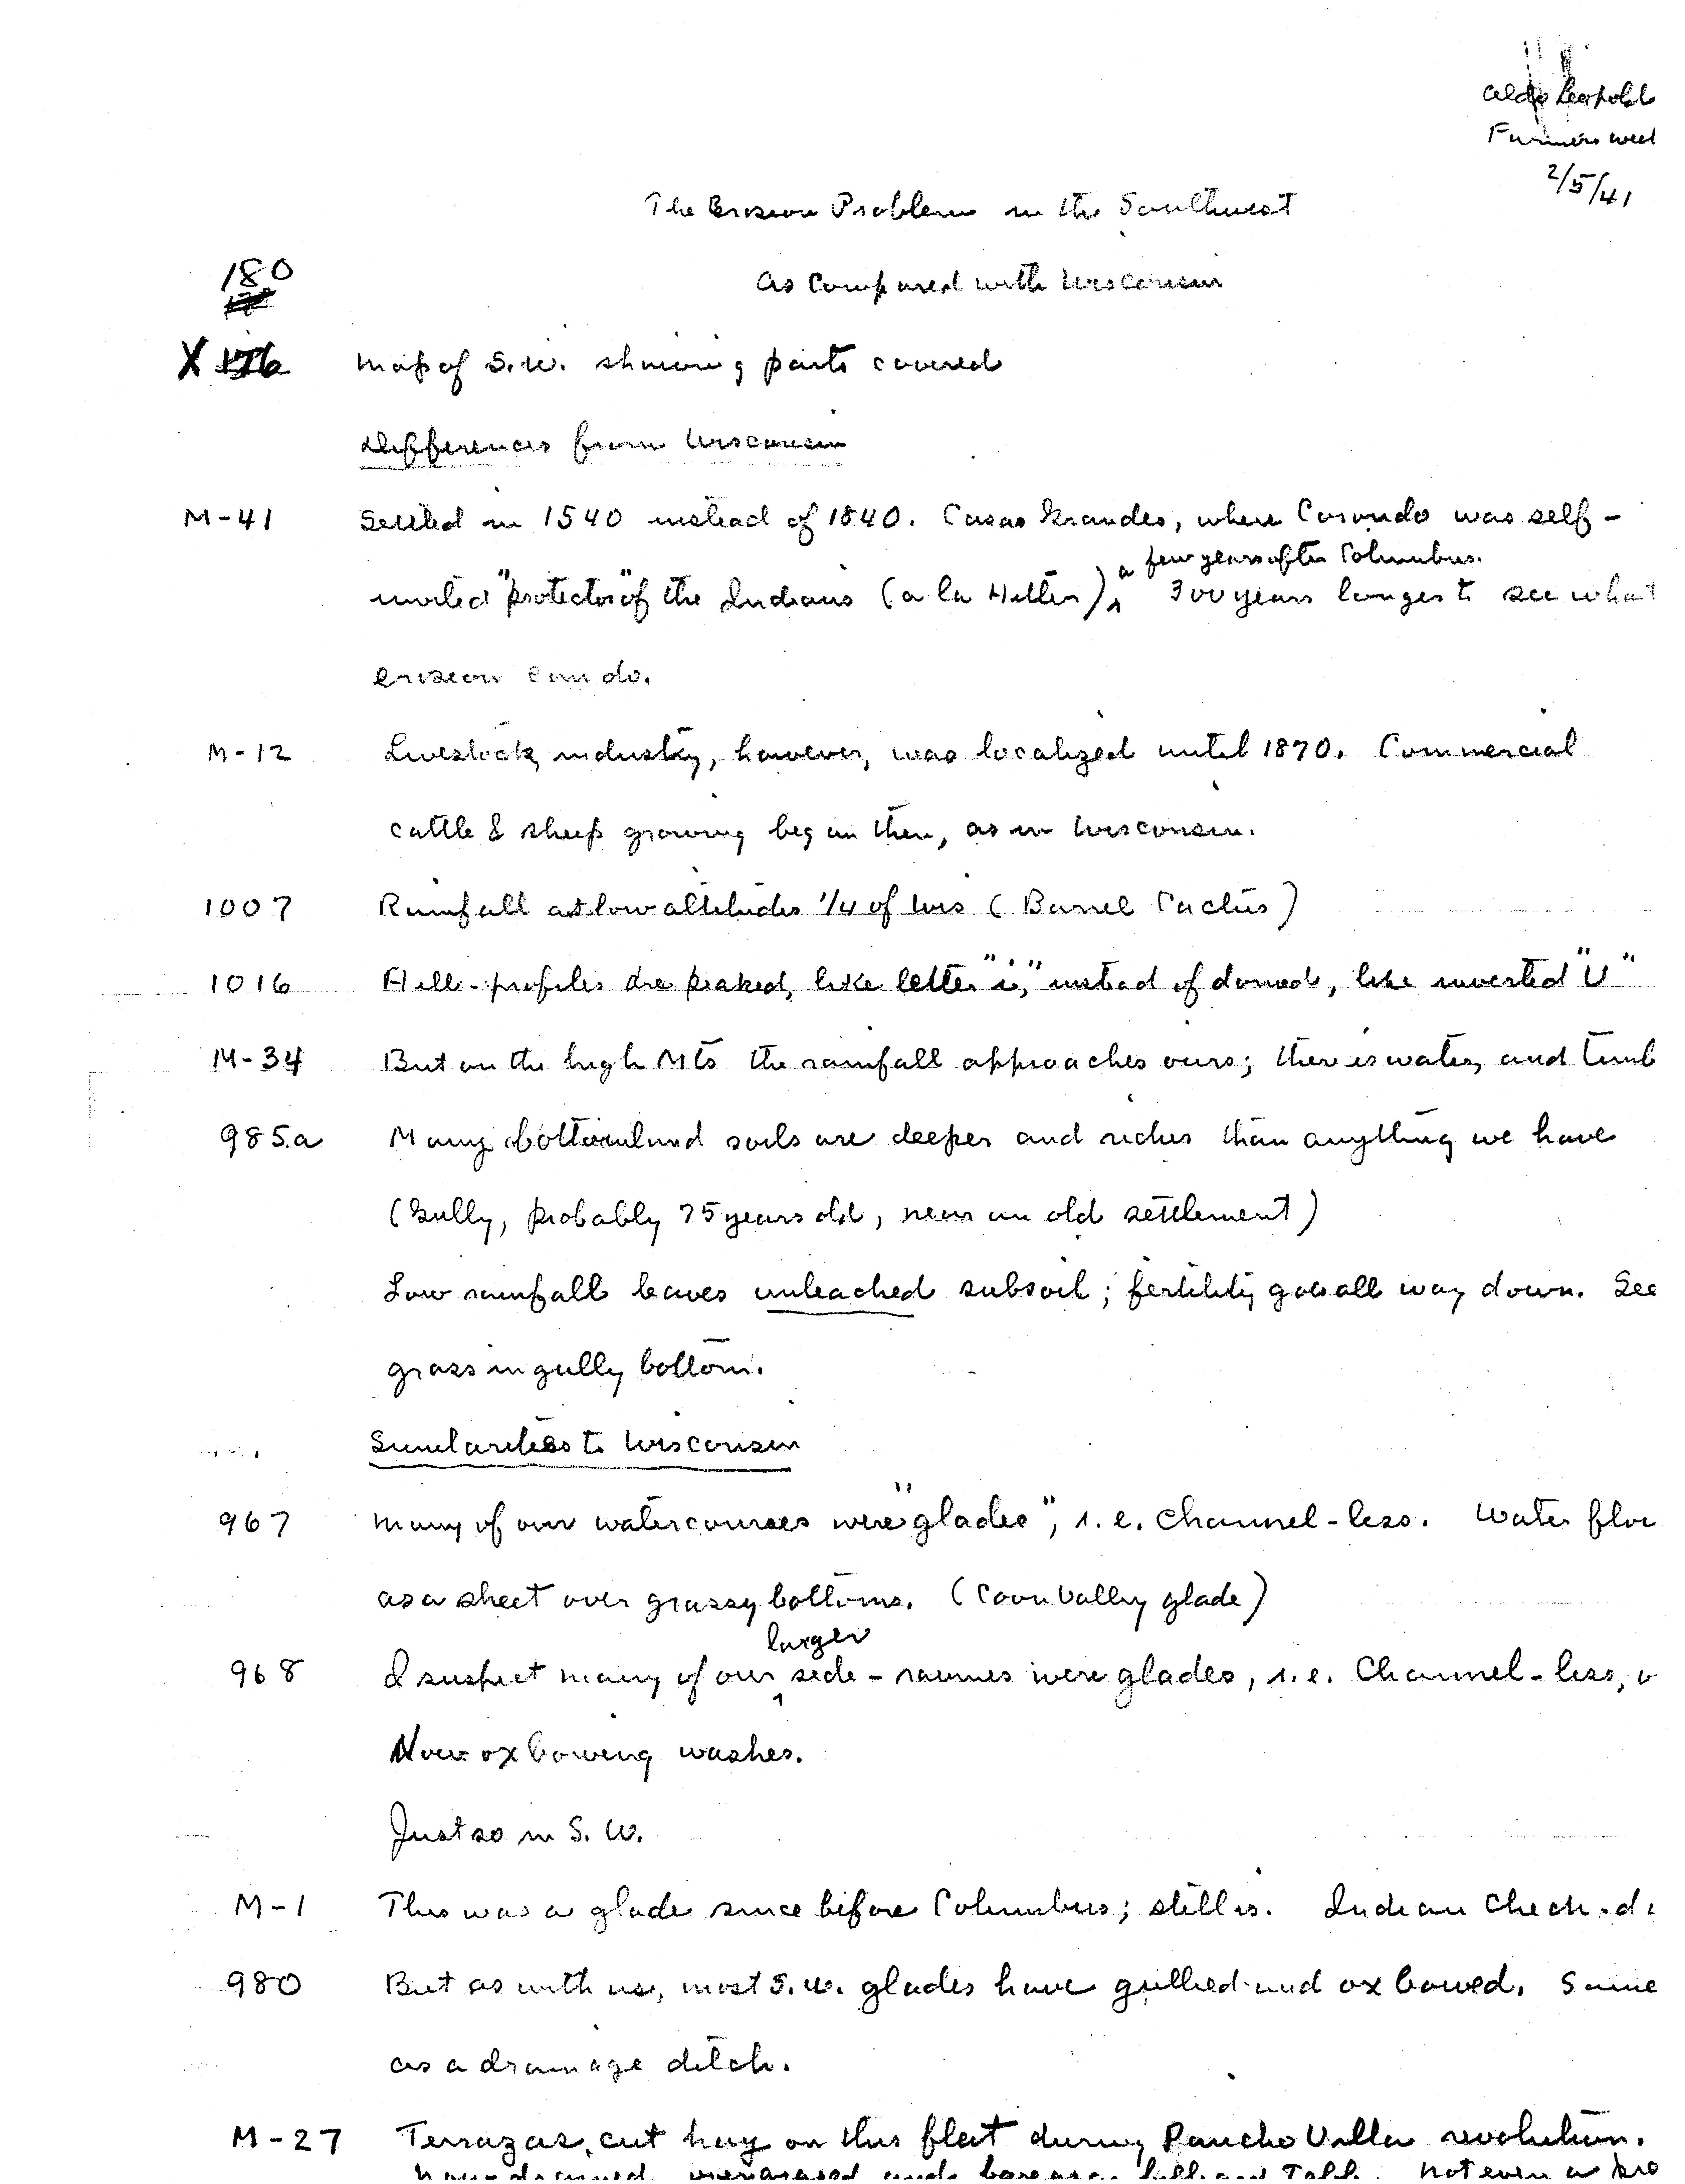 Aldo Leopold
Farmers Week
2/5/41
The Erosion Problem in the Southwest
As Compared with Wisconsin
180
X 176 Map of S.W. showing parts covered
Differences from Wisconsin
M-41 Settled in 1540 instead of 1840. Casas Grandes, where Coronado was self-
a few years after Columbus.
invited "protector" of the Indians (a la Hitler), 300 years longer to see what
erosion can do.
M-12 Livestock industry, however, was localized until 1870. Commercial
cattle & sheep growing began then, as in Wisconsin.
1007 Rainfall at low altitudes 1/4 of Wis (Barrel Cactus)
1016 Hill-profiles are peaked, like letter "i", instead of domed, like inverted "U"
M-34 But on the high Mts the rainfall approaches ours; there is water, and timb
985.a Many bottomland soils are deeper and richer than anything we have
(Gully, probably 75 years old, near an old settlement)
Low rainfall leaves unleached subsoil; fertility goes all way down. See
grass in gully bottom.
Similarities to Wisconsin
967 Many of our watercourses were "glades", i.e. channel-less. Water flow
as a sheet over grassy bottoms. (Coon Valley glade)
larger
968 I suspect many of our side-ravines were glades, i.e. Channel-less,
Now oxbowing washes.
Just so in S.W.
M-1 This was a glade since before Columbus; still is. Indian Check-d
980 But as with us, most S.W. glades have gullied and oxbowed. Same
as a drainage ditch.
M-27 Terrazas cut hay on this flat during Pancho Villa revolution.
Now drained, overgrazed and bare as a Not even a